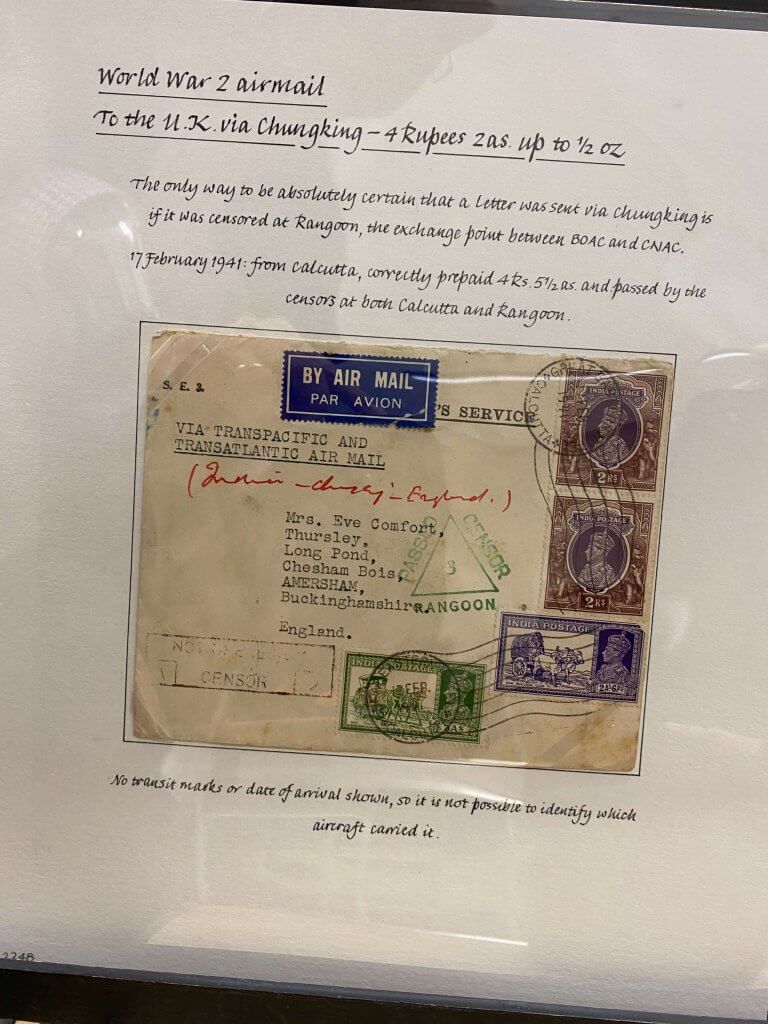 World War 2 airmail
To the U.K. via Chungking – 4 Rupees 2as. up to ½ oz
The only way to be absolutely certain that a letter was sent via Chungking is
if it was censored at Rangoon, the exchange point between BOAC and CNAC.
17 February 1941: from Calcutta, correctly prepaid 4 Rs. 5½ as. and passed by the
censors at both Calcutta and Rangoon.
S. E. 3.
BY AIR MAIL
PAR AVION
'S SERVICE
CALCUTTA
INDIA POSTAGE
2 RS
VIA TRANSPACIFIC AND
TRANSATLANTIC AIR MAIL
(India – – England.)
Mrs. Eve Comfort,
Thursley,
Long Pond,
Chesham Bois,
AMERSHAM,
Buckinghamshire.
England.
PASSED CENSOR
3
RANGOON
INDIA POSTAGE
2 RS
INDIA POSTAGE
2A.6P.
NOT
CENSOR
INDIA POSTAGE
FEB.
AS
No transit marks or date of arrival shown, so it is not possible to identify which
aircraft carried it.
2248